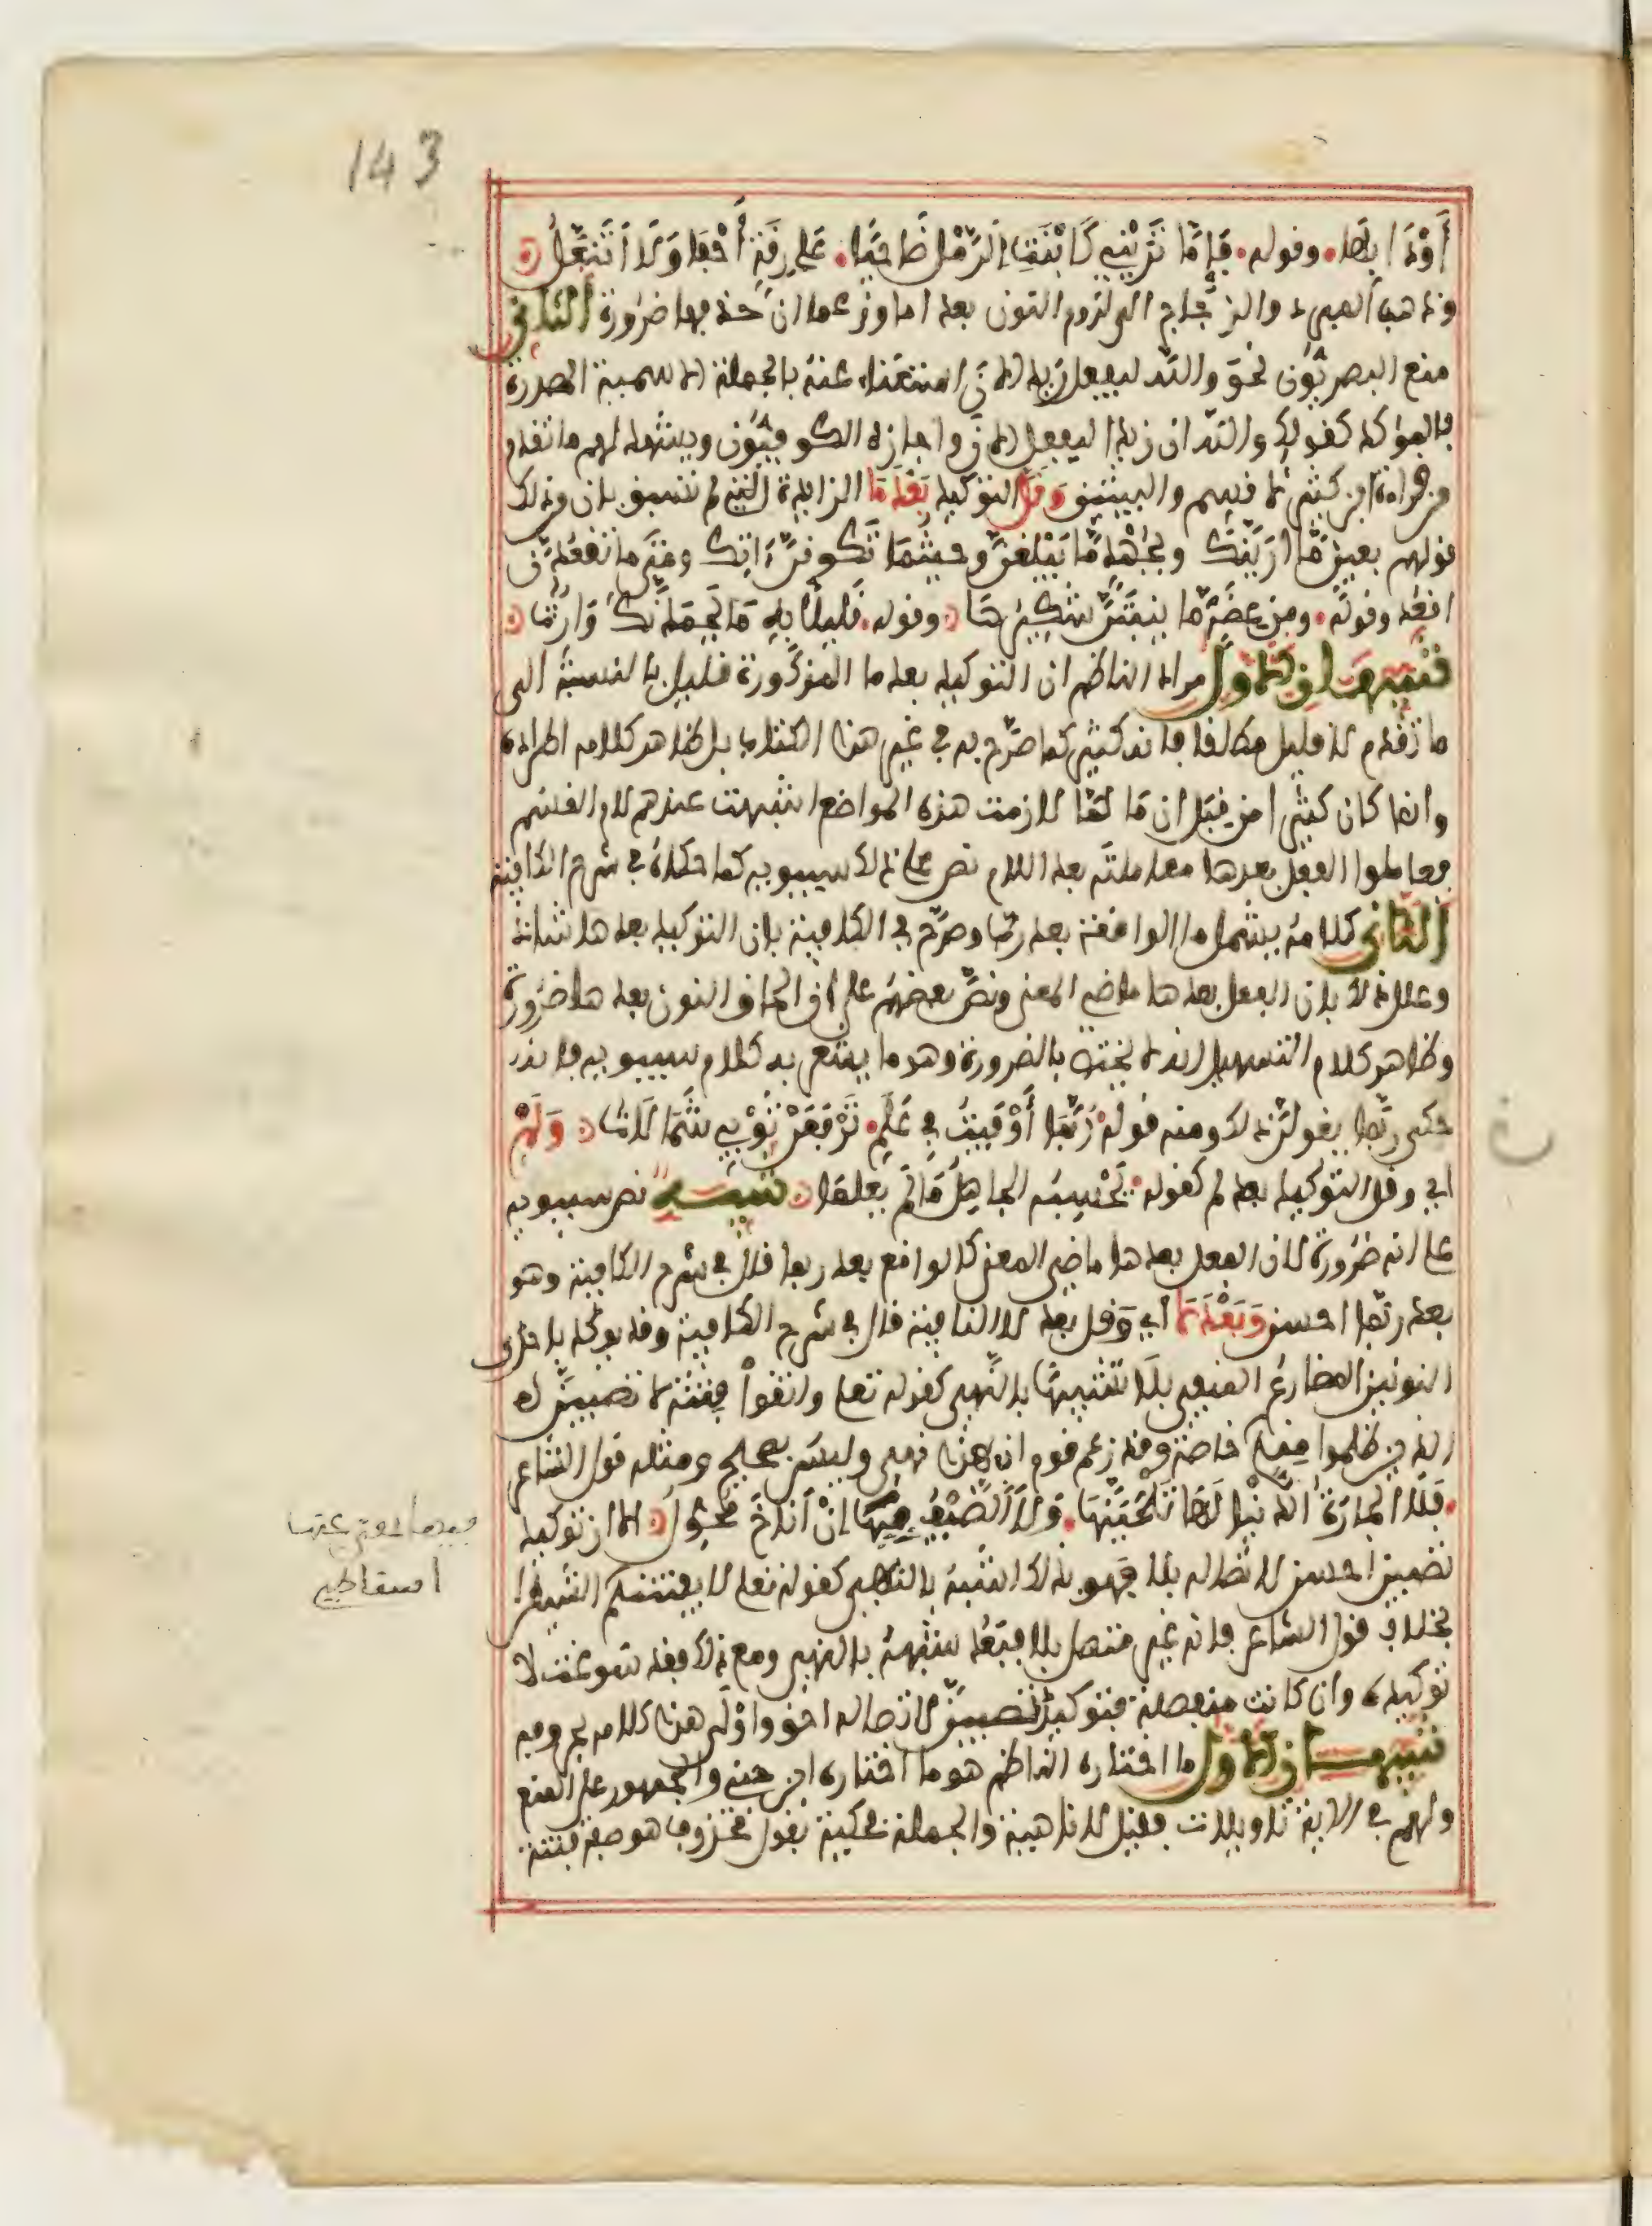 143
أَوْدَا ابِهَا وقوله فَإِمَّا تَرَيْنِي كَابْنَةِ الرَّمْلِ ضَاحِيًا عَلَى رِقَّةٍ أَحْفَى وَلَا أَتَنَعَّلُ
وذهب المبرد والزجاج الى لزوم النون بعد اما وزعما ان حذفها ضرورة الثاني
منع البصريون نحو والله ليفعل زيد الان استغناء عنه بالجملة الاسمية المصدرة
بالمؤكد كقولك والله ان زيدا ليفعل الان واجازه الكوفيون ويشهد لهم ما تقدم
من قراءة ابن كثير لا قسم والبيتين وقل التوكيد بعد ما الزائدة التي لم تسبق بان وذلك
قولهم بعين مّا ارينّك وبجهد مّا يبلغنّ وحيثما تكوننّ ءاتك ومتى ما تفعلنّ
افعل وقوله ومن عضة ما ينبتنّ شكيرها وقوله قليلا به ما يحمدنّك وارث
تنبيهان الاول مراد الناظم ان التوكيد بعد ما المذكورة قليل بالنسبة الى
ما تقدم لا قليل مطلقا فانه كثير كما صرّح به في غير هذا الكتاب بل ظاهر كلامه اطراده
وانما كان كثيرا من قبل ان ما لمّا لازمت هذه المواضع اشبهت عندهم لام القسم
فعاملوا الفعل بعدها معاملته بعد اللام نص على ذلك سيبويه كما حكاه في شرح الكافية
الثاني كلامه يشمل ما الواقعة بعد ربّ وصرّح في الكافية بان التوكيد بعدها شاذ
وعلل ذلك بان الفعل بعدها ماضي المعنى ونصّ بعضهم على ان الحاق النون بعدها ضرورة
وظاهر كلام التسهيل انه لا يختص بالضرورة وهو ما يشعر به كلام سيبويه فانه
حكى ربّما يقولنّ ذلك ومنه قوله رُبَّمَا أَوْفَيْتُ فِي عَلَمٍ تَرْفَعَنْ ثَوْبِي شَمَالَاتُ وَلَمْ
اي وقل التوكيد بعد لم كقوله يَحْسِبُه الجاهلُ مَا لَمْ يعلمَا تنبيه نص سيبويه
على انه ضرورة لان الفعل بعدها ماضي المعنى كالواقع بعد ربما قال في شرح الكافية وهو
بعد ربّما احسن وَبَعْدَ لَا اي وقل بعد لا النافية قال في شرح الكافية وقد يوكد باحدى
النونين المضارع المنفي بلا تشبيها بالنهي كقوله تعلى واتقوا فتنة لا تصيبنّ ا
لذين ظلموا منكم خاصة وقد زعم قوم ان هذا نهي وليس بصحيح ومثله قول الشاعر
فَلَا الجارَةُ الدُّنْيَا لَهَا تَلْحَيَنَّهَا وَلَا الضَّيْفُ فِيهَا إِنْ أَنَاخَ مُحَوَّلُ الا ان توكيد
تصيبن احسن لاتصاله بلا فهو بذلك اشبه بالنهي كقوله تعلى لا يفتننكم الشيطان
بخلاف قول الشاعر فانه غير متصل بلا فبعد شبهه بالنهي ومع ذلك فقد سوغت لا
توكيده وان كانت منفصلة فتوكيد تصيبنّ لاتصاله احق واولى هذا كلامه بحروفه
تنبيهان الاول ما اختاره الناظم هو ما اختاره ابن جني والجمهور على المنع
ولهم في الاية تاويلات فقيل لا ناهية والجملة محكية بقول محذوف هو صفة فتنة
اسقاطي